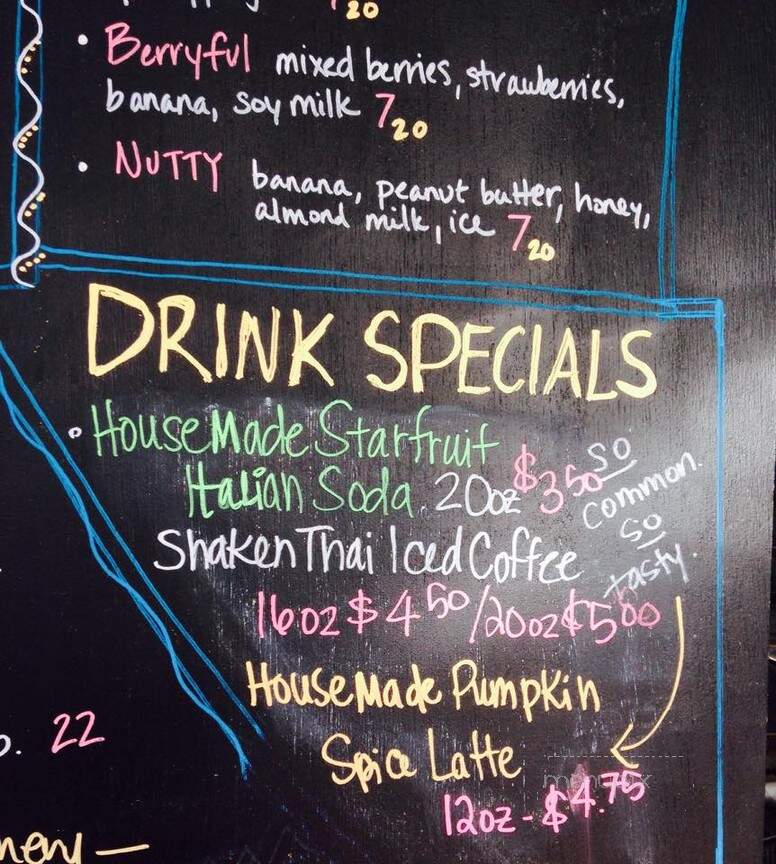 20
• Berryful mixed berries, strawberries,
banana, soy milk 7 20
• NUTTY banana, peanut butter, honey,
almond milk, ice 7 20
DRINK SPECIALS
• HouseMade Starfruit
Italian Soda. 20oz $3 50
so
common.
so
tasty.
Shaken Thai Iced Coffee
16oz $4 50/20oz $5 00
HouseMade Pumpkin
Spice Latte
12oz - $4.75
22